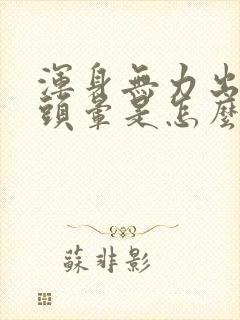 渾身無力出
頭暈是怎麼
蘇非影